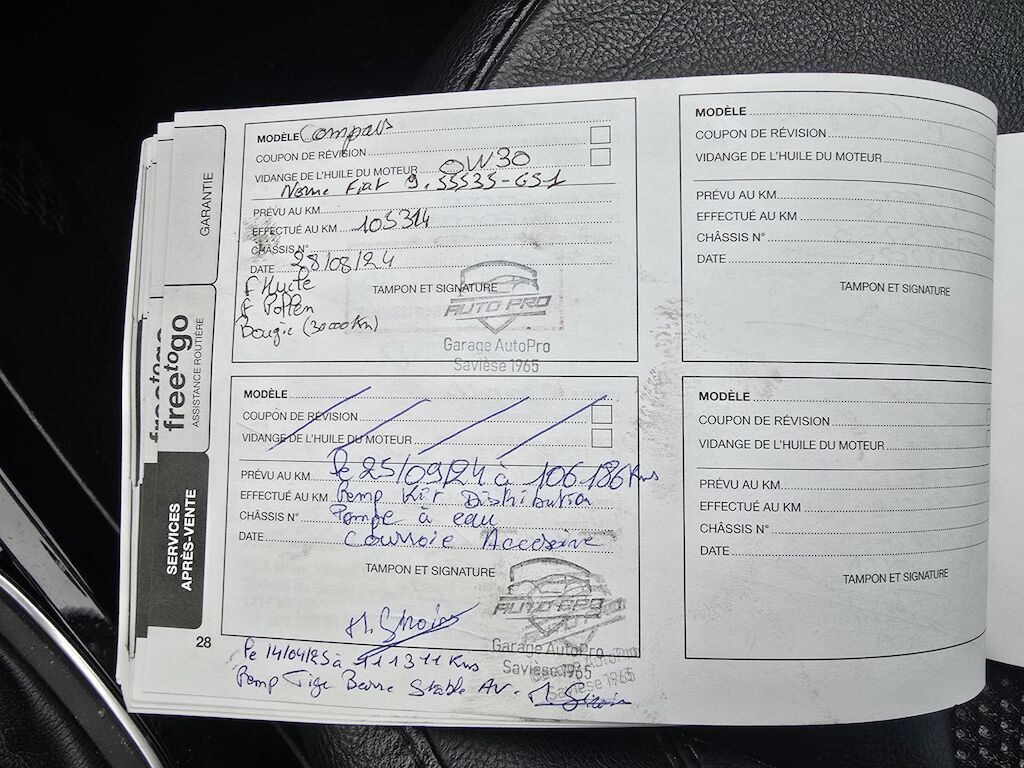 GARANTIE
freetogo
freetogo
ASSISTANCE ROUTIÈRE
SERVICES
APRÈS-VENTE
28
MODÈLE Compass
COUPON DE RÉVISION
VIDANGE DE L'HUILE DU MOTEUR 0W30
Norme Fiat 9.55535-GS1
PRÉVU AU KM
EFFECTUÉ AU KM 105314
CHÂSSIS N°
DATE 28/08/24
f Huile
TAMPON ET SIGNATURE
f Pollen
Bougie (30000Km)
AUTO PRO
Garage AutoPro
Savièse 1965
MODÈLE
COUPON DE RÉVISION
VIDANGE DE L'HUILE DU MOTEUR
PRÉVU AU KM Le 25/09/24 à 106186 Kms
EFFECTUÉ AU KM Remp Kit Distribution
CHÂSSIS N° Pompe à eau
DATE Courroie Accesoire
TAMPON ET SIGNATURE
AUTO PRO
Garage AutoPro
Savièse 1965
Le 14/04/25 à 111311 Kms
Remp Tige Barre Stable AV.
MODÈLE
COUPON DE RÉVISION
VIDANGE DE L'HUILE DU MOTEUR
PRÉVU AU KM
EFFECTUÉ AU KM
CHÂSSIS N°
DATE
TAMPON ET SIGNATURE
MODÈLE
COUPON DE RÉVISION
VIDANGE DE L'HUILE DU MOTEUR
PRÉVU AU KM
EFFECTUÉ AU KM
CHÂSSIS N°
DATE
TAMPON ET SIGNATURE